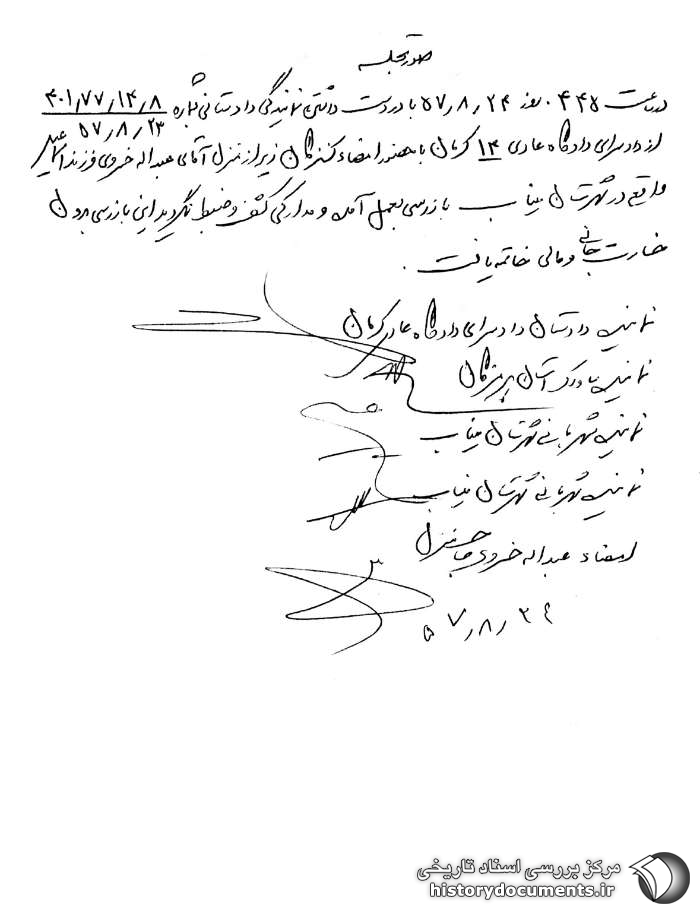 صورتجلسه
در ساعت ۰۴۴۵ روز ۵۷/۸/۲۴ با در دست داشتن نمایندگی دادستانی بشماره ۴۰۱/۷۷/۱۴/۸
۵۷/۸/۲۳
از دادسرای دادگاه عادی ۱۴ کرمان با حضور امضاء کنندگان زیر از منزل آقای عبداله خسروی فرزند
واقع در شهرستان میناب بازرسی بعمل آمده و مدارکی کشف و ضبط نگردید این بازرسی بدون
خسارت جانی و مالی خاتمه یافت .
نماینده دادستان دادسرای دادگاه عادی کرمان
نماینده ساواک استان هرمزگان
نماینده شهربانی شهرستان میناب
نماینده شهربانی شهرستان میناب
امضاء عبداله خسروی صاحب منزل
۵۷/۸/۲۴
مرکز بررسی اسناد تاریخی
historydocuments.ir